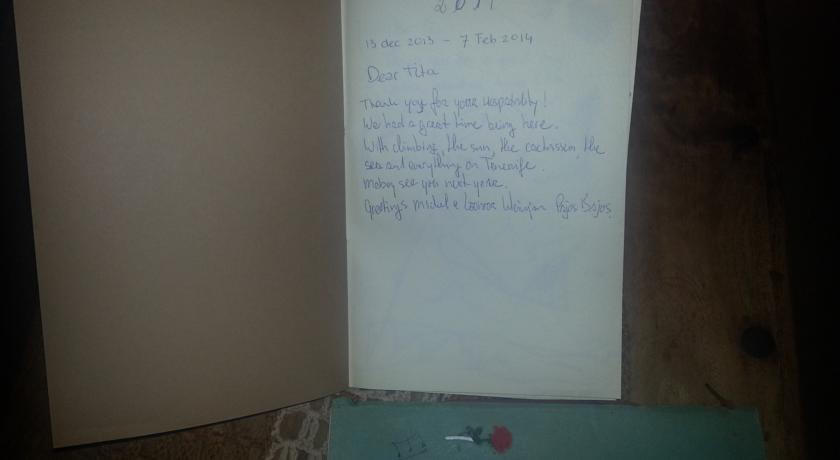 2014
13 dec 2013 - 7 Feb 2014
Dear Tita
Thank you for youre Hospitality!
We had a great time being here.
With climbing, the sun, the cactussen, the
sea and everything on Tenerife.
Maby see you next yore.
Greetings Michel e Pajos Bajos.